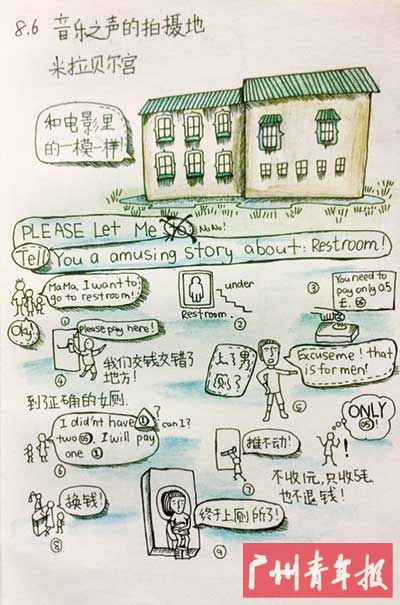 8.6 音乐之声的拍摄地
米拉贝尔宫
和电影里
的一模一样!
PLEASE Let Me NoNo!
Tell You a amusing story about: Restroom!
MaMa, I want to
go to restroom!
Okay
①
under
Restroom.
②
③
You need to
pay only 0.5
£.
Please pay here!
④
我们交钱交错了
地方!
上了男厕!
⑤
Excuseme! that
is for men!
到了正确的女厕.
I didn't have ① can I?
two 0.5, I will pay
one ①
⑥
推不动!
⑦
ONLY
0.5!
!
不收1元,只收5毛,
也不退钱!
换钱!
⑧
终于上厕所了!
⑨
广州青年报